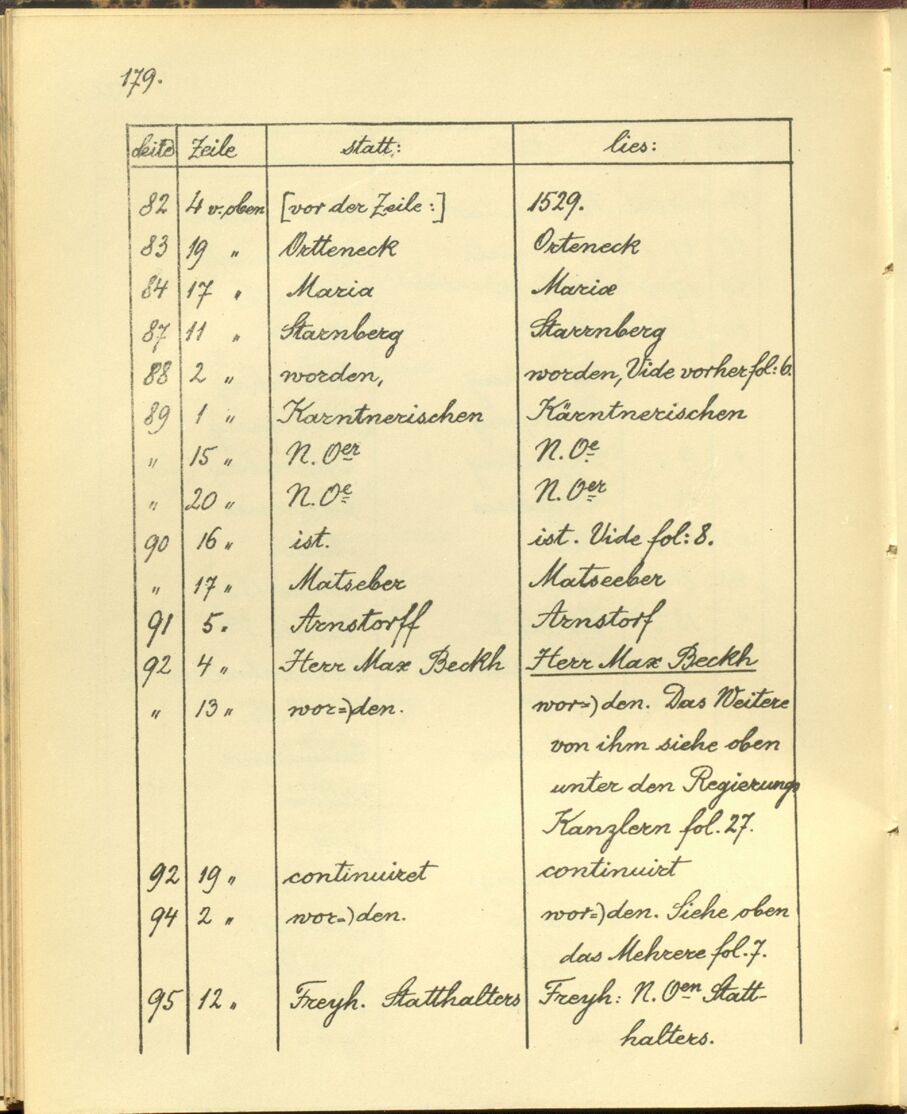 179.
Seite Zeile statt: lies:
82 4 v. oben [vor der Zeile:] 1529.
83 19 „ Ortteneck Orteneck
84 17 „ Maria Mariæ
87 11 „ Starnberg Starrnberg
88 2 „ worden, worden, Vide vorher fol: 6.
89 1 „ Karntnerischen Kärntnerischen
„ 15 „ N. Oer N. Oe
„ 20 „ N. Oe N. Oer
90 16 „ ist. ist. Vide fol: 8.
„ 17 „ Matseber Matseeber
91 5. Arnstorff Arnstorf
92 4 „ Herr Max Beckh Herr Max Beckh
„ 13 „ wor=)den. wor=)den. Das Weitere
von ihm siehe oben
unter den Regierungs
Kanzlern fol. 27.
92 19 „ continuiret continuirt
94 2 „ wor=)den. wor=)den. Siehe oben
das Mehrere fol. 7.
95 12 „ Freyh. Statthalters Freyh: N. Oen Statt-
halters.